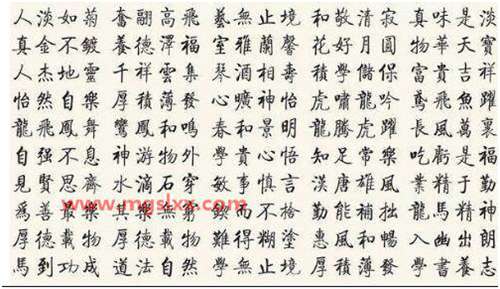 人淡如菊 奮翮高飛 藝無止境 和敬清寂 真味是淡
真金不鍍 養德澤福 室雅蘭馨 花好月圓 物華天寶
人杰地靈 千祥雲集 琴酒相壽 學儲保 富貴吉祥
怡然自樂 厚積薄發 曠神怡 虎嘯龍吟 鳶飛魚躍
龍飛鳳舞 鸞鳳和鳴 春和景明 龍騰虎躍 長風萬裏
自强不息 神游物外 學貴心悟 知足常樂 吃虧是福
見賢思齊 水滴石穿 敏事慎言 漢唐雄風 業精于勤
www.mgslxx.com
爲善最樂 其樂無窮 而不 勤能補拙 龍馬精神
厚德載物 厚德載物 難得糊塗 惠風和暢 入幽出朗
馬到功成 道法自然 學無止境 厚積薄發 學書養志